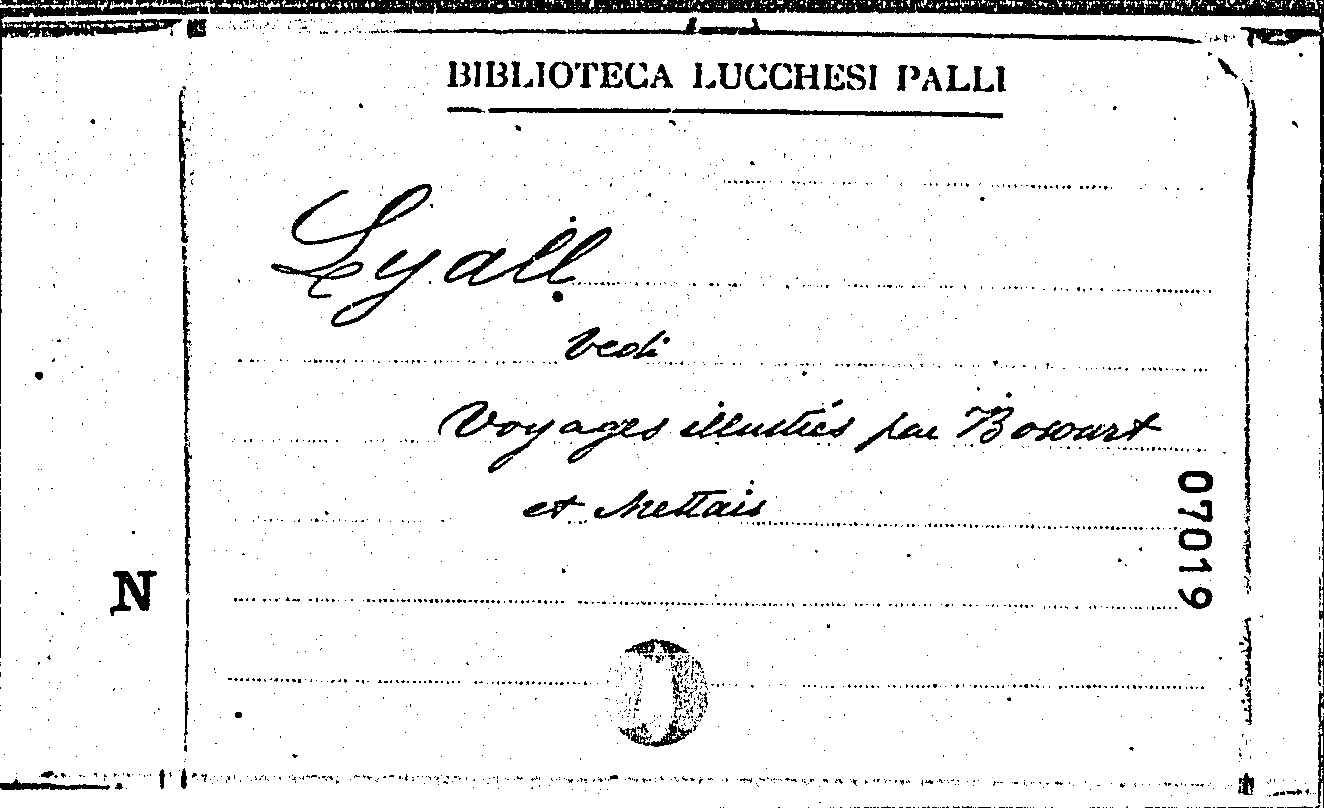 BIBLIOTECA LUCCHESI PALLI
Lyall
Vedi
Voyages illustrés par Bocourt
et Mettais
07019
N